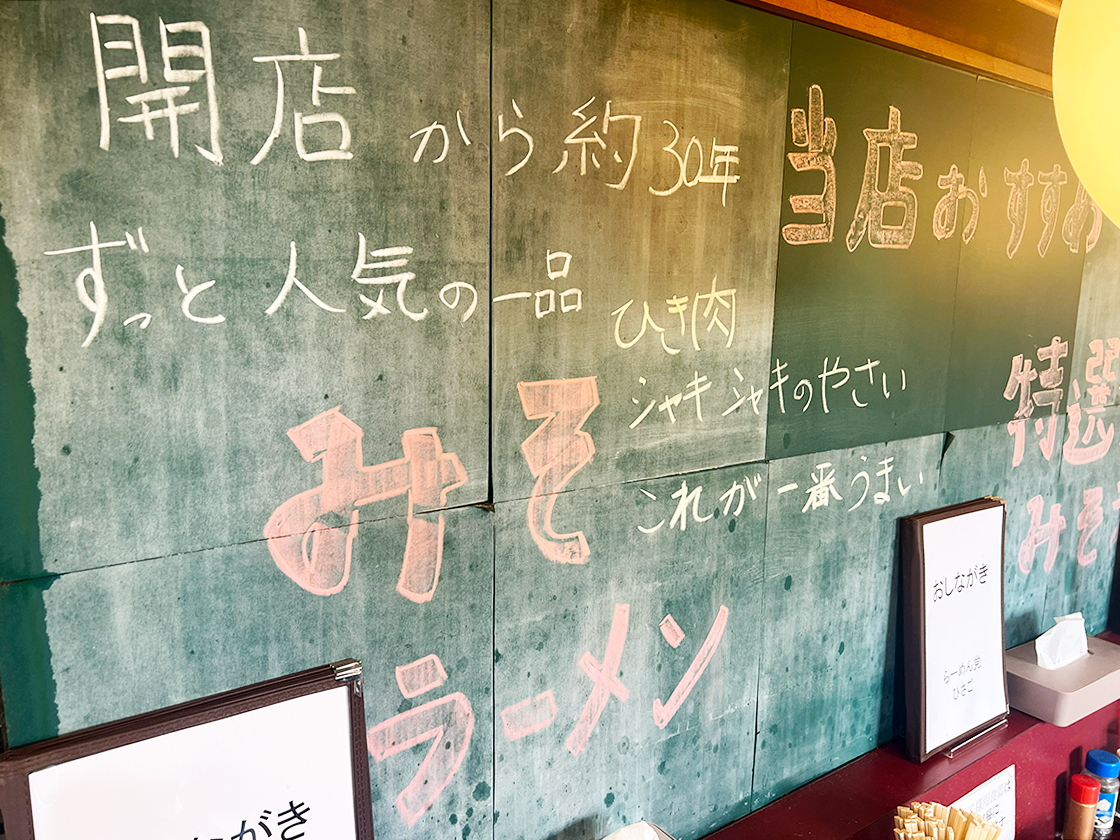 開店から約30年
ずっと人気の一品
みそ
ラーメン
ひき肉
シャキシャキのやさい
これが一番うまい
当店おすすめ
特選
みそ
おしながき
らーめん党
ひさご
ながき